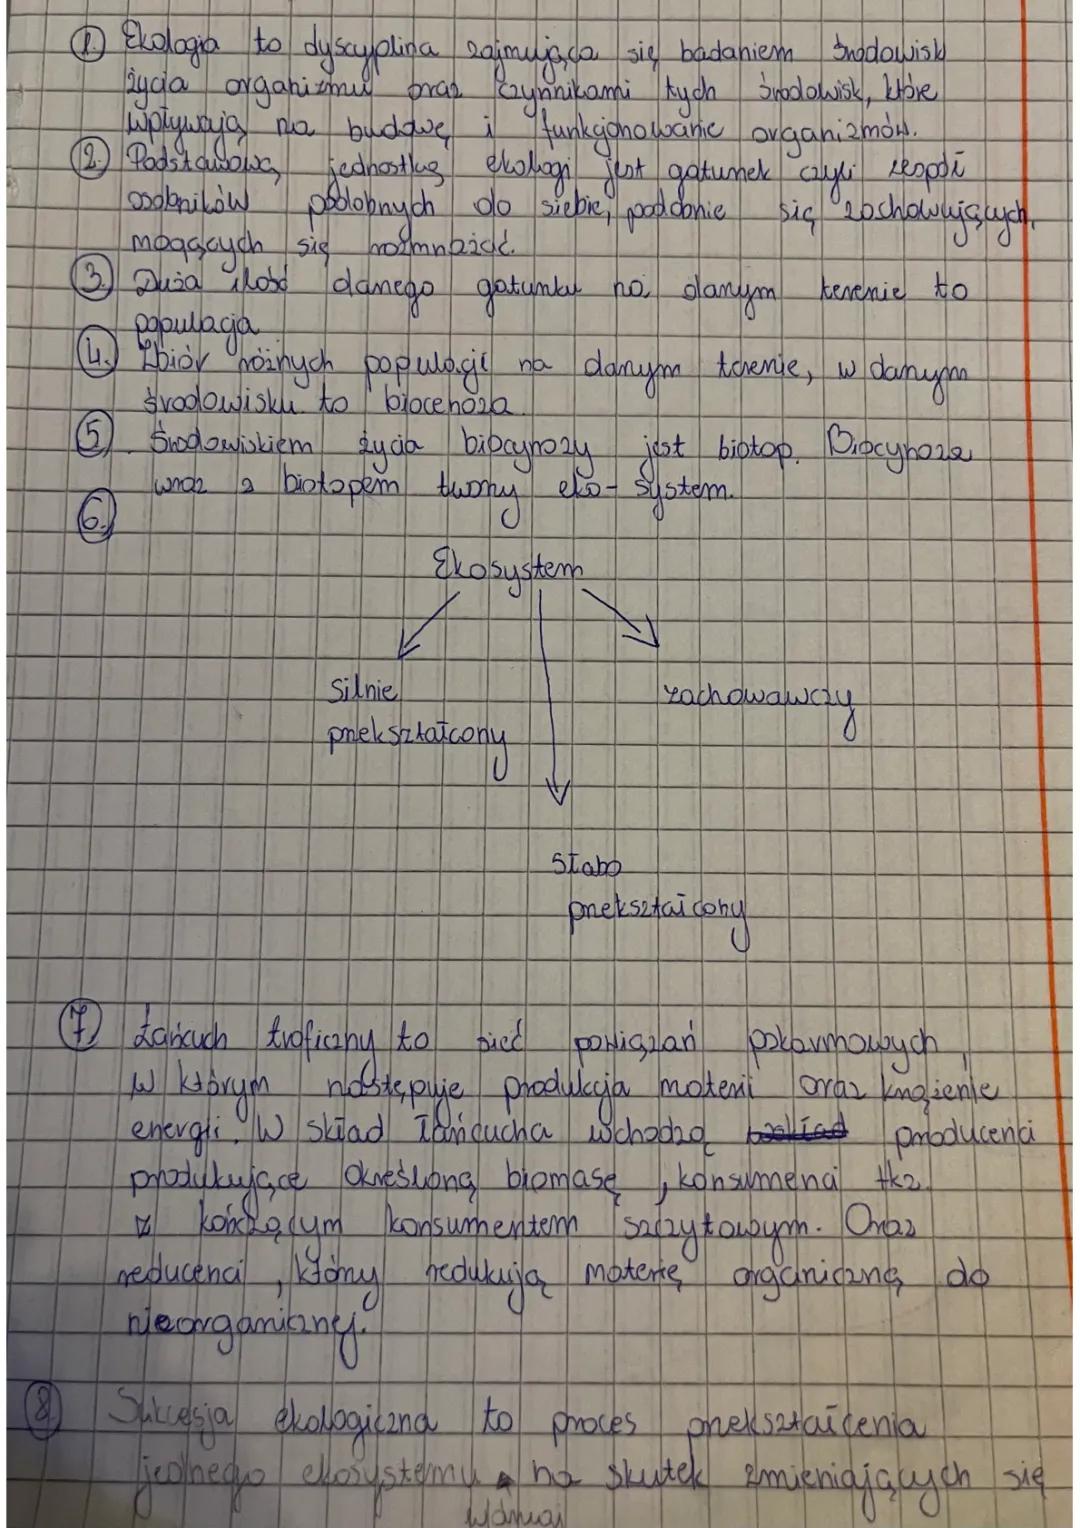 1. Ekologia to dyscyplina zajmująca się badaniem środowisk
życia organizmu oraz czynnikami tych środowisk, które
wpływają na budowę i funkcjonowanie organizmów.
2. Podstawową jednostką ekologi jest gatunek czyli zespół
osobników podobnych do siebie, podobnie się zachowujących,
mogących się rozmnażać.
3. Duża ilość danego gatunku na danym terenie to
populacja
4. Zbiór różnych populacji na danym terenie, w danym
środowisku to biocenoza
5. Środowiskiem życia biocynozy jest biotop. Biocynoza
wraz z biotopem tworzy eko-system.
6.
Ekosystem
silnie
przekształcony
zachowawczy
słabo
przekształcony
7. Łańcuch troficzny to sieć powiązań pokarmowych,
w którym następuje produkcja materii oraz krążenie
energii. W skład łańcucha wchodzą producenci
produkujące określoną biomasę, konsumenci tkz.
z kończącym konsumentem szczytowym. Oraz
reducenci, który redukują materię organiczną do
nieorganicznej.
8. Sukcesja ekologiczna to proces przekształcenia
jednego ekosystemu na skutek zmieniających się